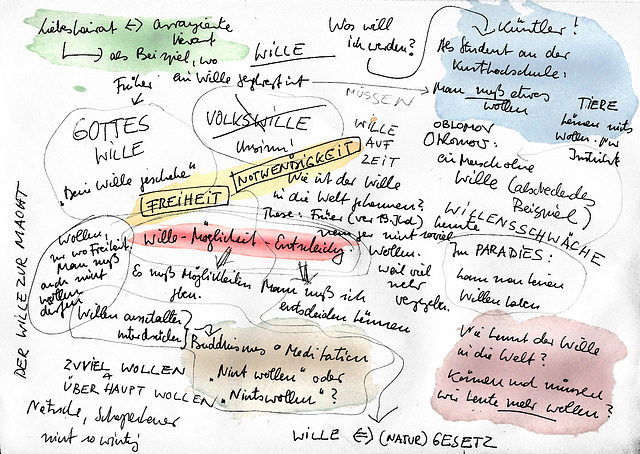 Liebesheirat <=> Arrangierte
Heirat
als Beispiel, wo
ein Wille geformt ist
WILLE
Was will
ich werden?
Künstler!
Als Student an der
Kunsthochschule:
Man muß etwas
wollen
MÜSSEN
Früher
GOTTES
WILLE
"Dein Wille geschehe"
VOLKSWILLE
Unsinn!
FREIHEIT
NOTWENDIGKEIT
WILLE
AUF
ZEIT
OBLOMOV
Oblomow:
ein Mensch ohne
Wille (abschreckendes
Beispiel)
TIERE
können nichts
wollen. Nur
Instinkt
Wie ist der Wille
in die Welt gekommen?
These: Früher (vor
heute
Wollen.
weil viel
mehr
WILLENSSCHWÄCHE
Im PARADIES:
kann man keinen
Willen haben
DER WILLE ZUR MACHT
Wollen,
nur wo Freiheit.
Man muß
auch nicht
wollen
dürfen
Wille - Möglichkeit - Entscheidg.
Es muß Möglichkeiten
geben.
Man muß sich
entscheiden können
Willen ausschalten
unterdrücken
Buddhismus Meditation
"Nicht wollen" oder
"Nichts wollen"?
Wie kommt der Wille
in die Welt?
Können und müssen
wir heute mehr wollen?
ZUVIEL WOLLEN
ÜBERHAUPT WOLLEN
Nietsche, Schopenhauer
nicht so wichtig
WILLE <=> (NATUR) GESETZ